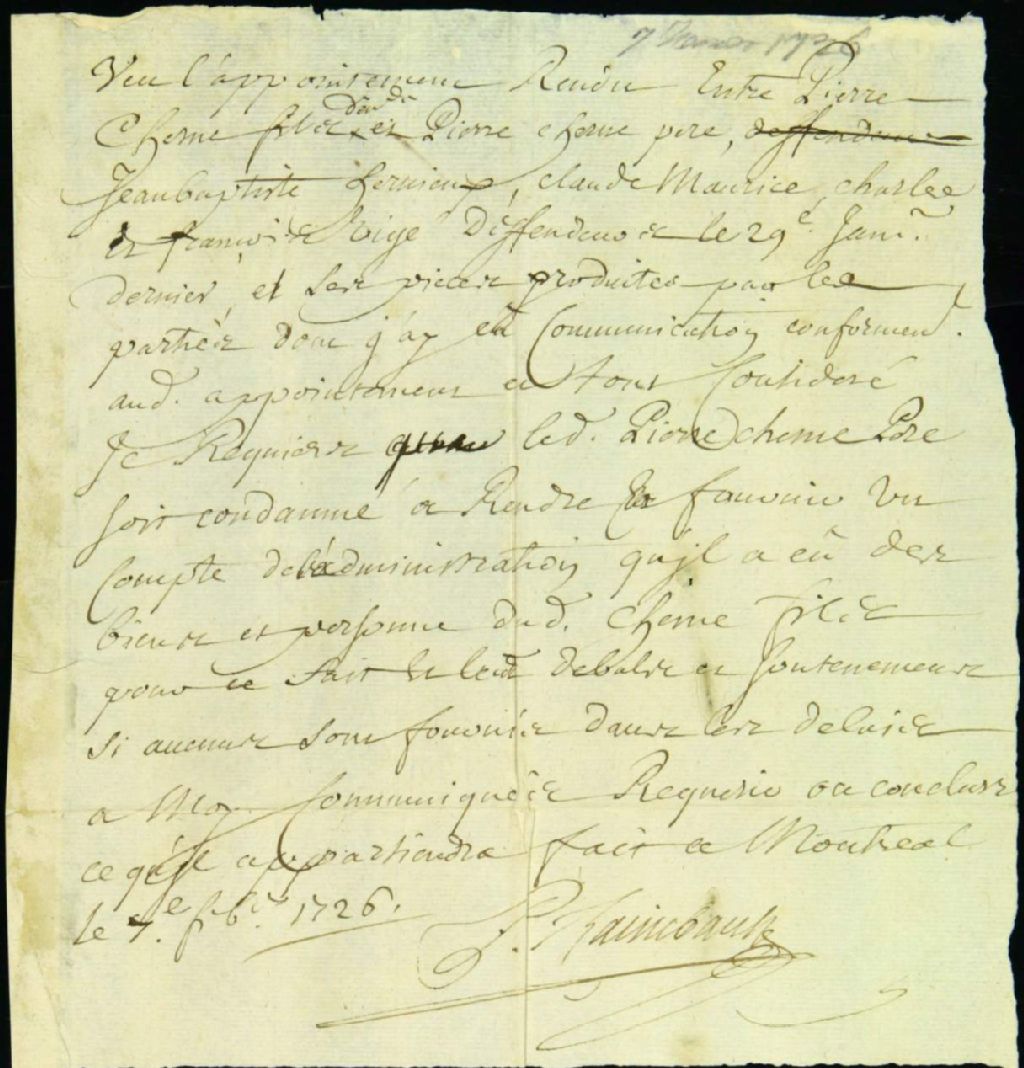 7 1726
Veu l'appointement Rendu Entre Pierre
Chesne fils demdr et Pierre chesne pere, deffendeur
Jeanbaptiste , claude Maurice, charles
et françois Deffendeurs le 29e. Janr.
dernier, et les pieces produites par les
parties dont j'ay eu Communication conformemt.
aud. appointement et tout Consideré
Je Requiers que led. Pierre chesne Pere
soit condamné a Rendre Et fournir un
Compte de l'administration qu'jl a eû des
biens et personne dud. Chesne fils
pour ce fait et les debats et soutenements
si aucuns sont fournis dans les delais
a Moy Communiquées Requerir ou conclure
ce qu'jl appartiendra fait a Montreal
le 7e. febr. 1726.
P. Raimbault